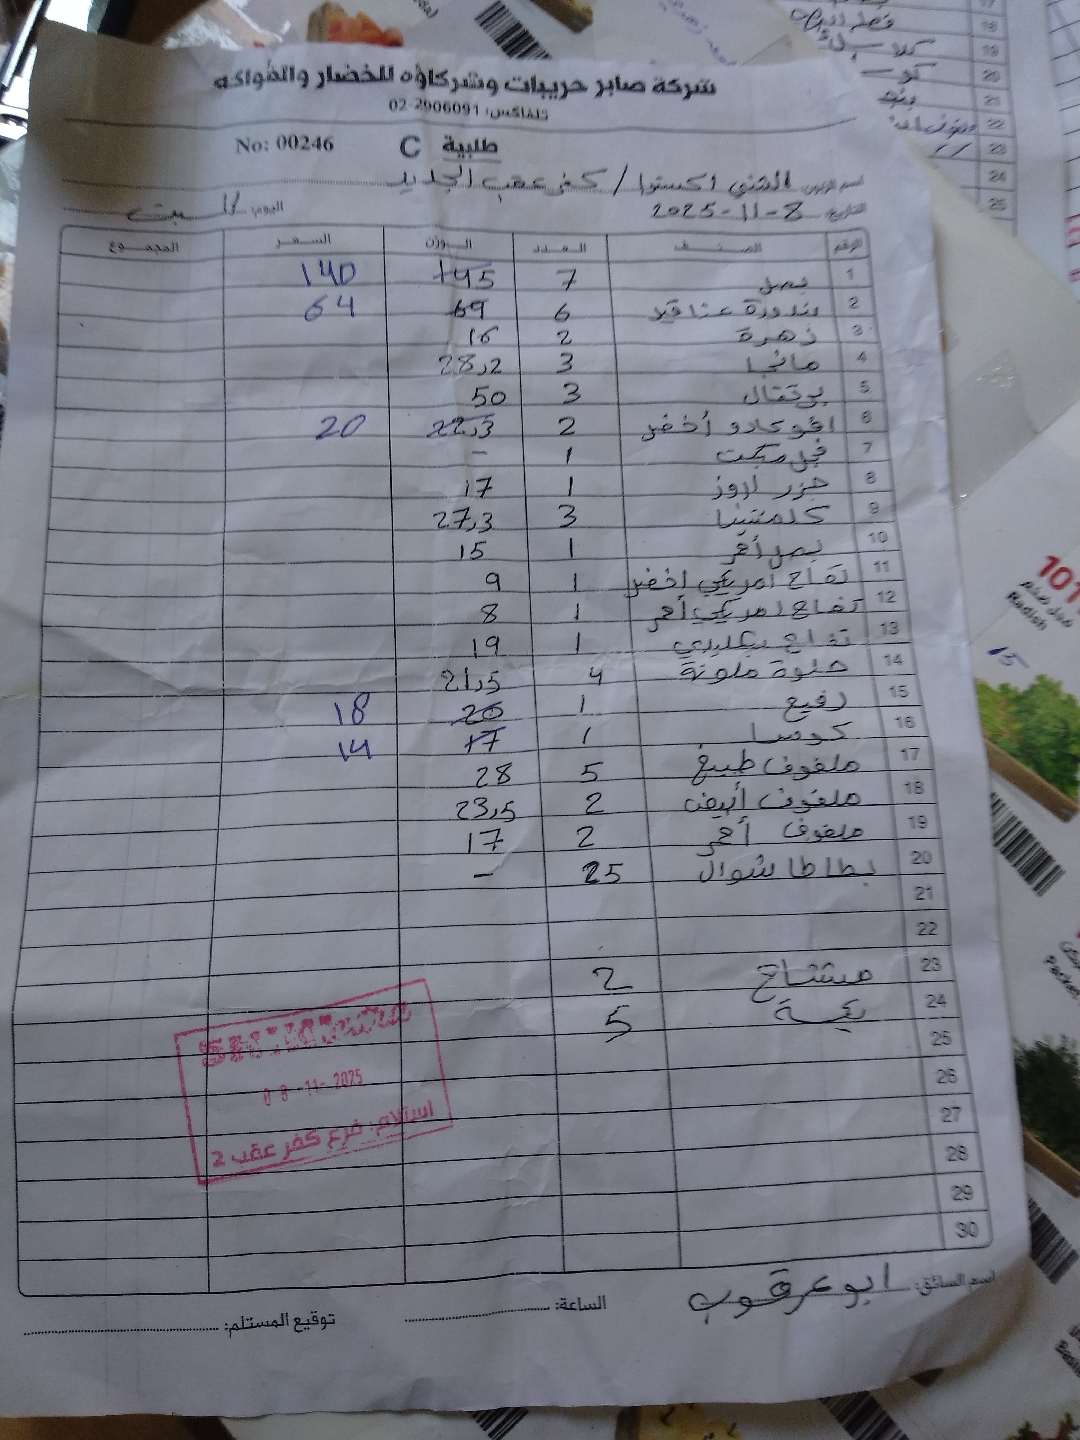 شركة صابر حريبات وشركاؤه للخضار والفواكه
تلفاكس: 02-2906091
No: 00246 طلبية C
اسم الزبون: الشني اكسترا / كفر عقب الجديد
التاريخ: 8-11-2025 اليوم: السبت
الرقم الصنف العدد الوزن السعر المجموع
1 بصل 7 145 140
2 بندورة عناقيد 6 69 64
3 زهرة 2 16
4 مانجا 3 28,2
5 برتقال 3 50
6 افوكادو أخضر 2 22,3 20
7 فجل مكت 1 -
8 جزر لاروز 1 17
9 كلمنتينا 3 27,3
10 بصل أحمر 1 15
11 تفاح امريكي اخضر 1 9
12 تفاح امريكي أحمر 1 8
13 تفاح سكري 1 19
14 حلوة ملونة 4 21,5
15 رفيع 1 20 18
16 كوسا 1 17 14
17 ملفوف طبيخ 5 28
18 ملفوف أبيض 2 23,5
19 ملفوف أحمر 2 17
20 بطاطا شوال 25 -
21
22
23 مشتاح 2
24 بكسة 5
25
26
27
28
29
30
08-11-2025
استلام: فرع كفر عقب 2
اسم السائق: ابو عرقوب
الساعة:
توقيع المستلم:
101
فجل ضخم
Radish
15
17
18
19
20
21
22
23
24
25